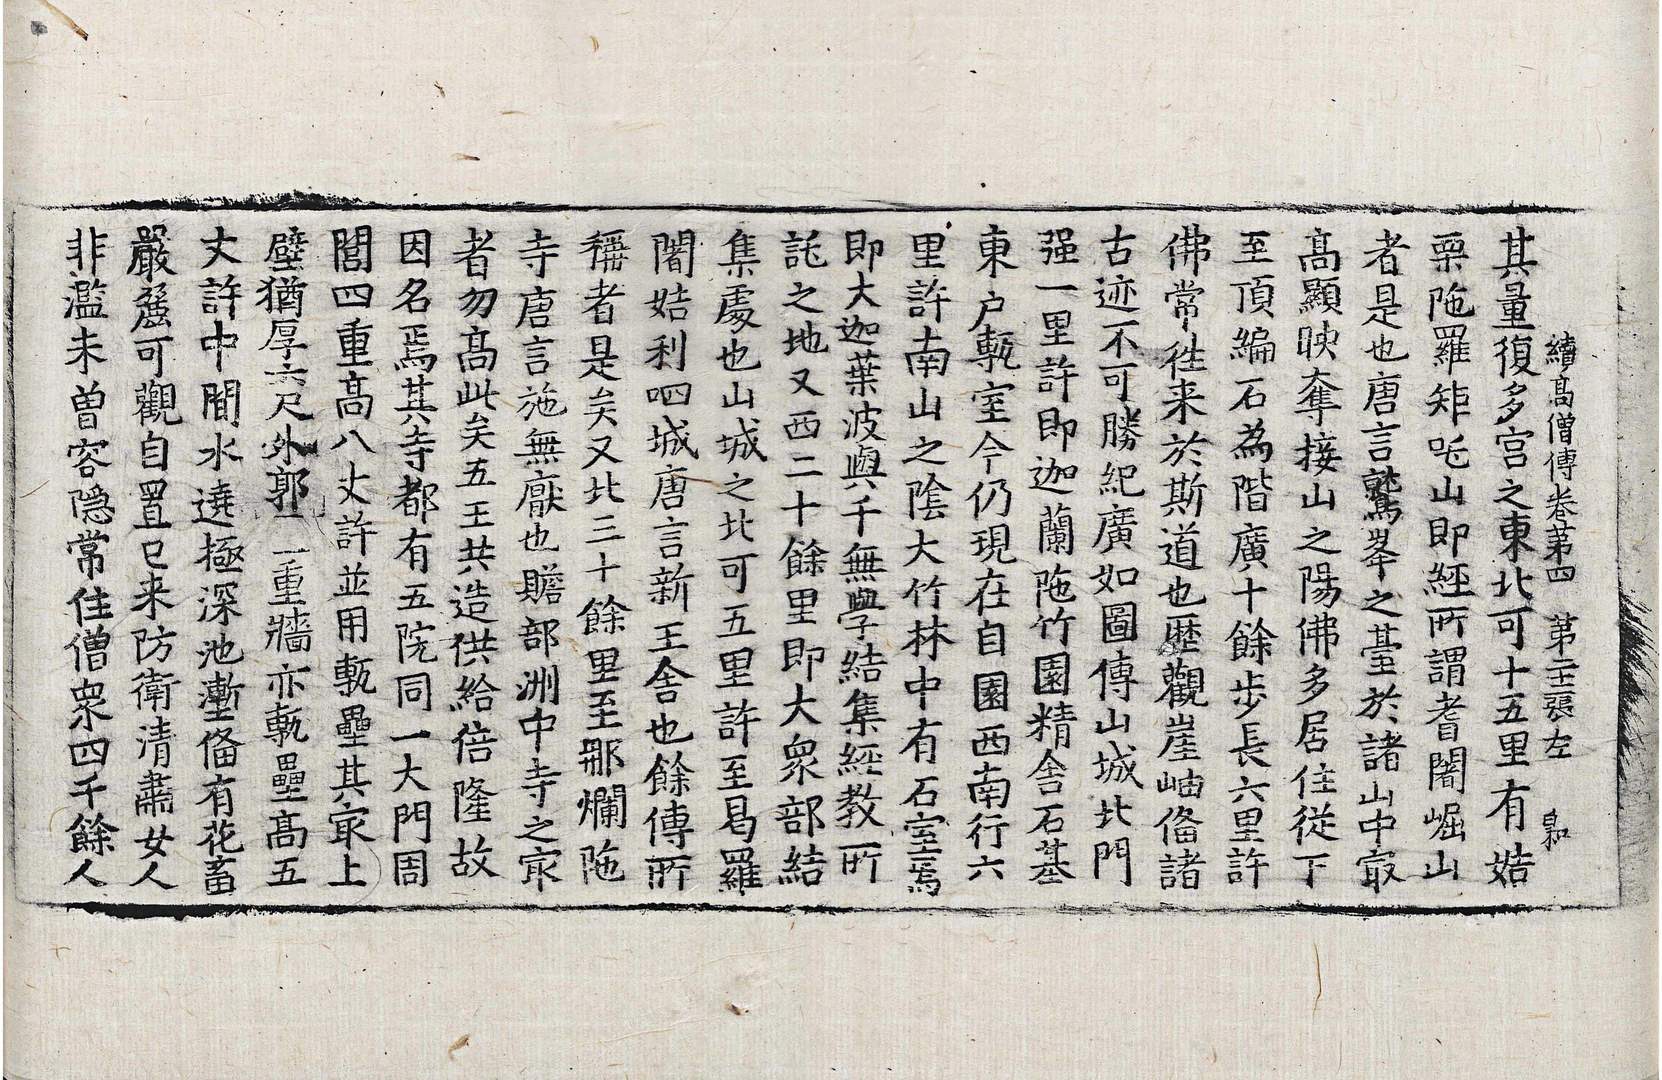 續高僧傳卷第四　第二十張左　自和
其量復多宮之東北可十五里有姞
栗陁羅矩吒山即經所謂耆闍崛山
者是也唐言鷲峯之臺於諸山中㝡
高顯映奪接山之陽佛多居住從下
至頂編石為階廣十餘步長六里許
佛常往来於斯道也歷觀崖岫俻諸
古迹不可勝紀廣如圖傳山城北門
强一里許即迦蘭陁竹園精舍石基
東户甎室今仍現在自園西南行六
里許南山之陰大竹林中有石室焉
即大迦葉波與千無學結集經教所
託之地又西二十餘里即大衆部結
集處也山城之北可五里許至曷羅
闍姞利呬城唐言新王舍也餘傳所
稱者是矣又北三十餘里至那爛陁
寺唐言施無厭也贍部洲中寺之㝡
者勿高此矣五王共造供給倍隆故
因名焉其寺都有五院同一大門周
閭四重高八丈許並用甎壘其㝡上
壁猶厚六尺外郭一重牆亦甎壘高五
丈許中間水遶極深池壍俻有花畜
嚴麗可觀自置已来防衛清肅女人
非濫未曽容隱常住僧衆四千餘人